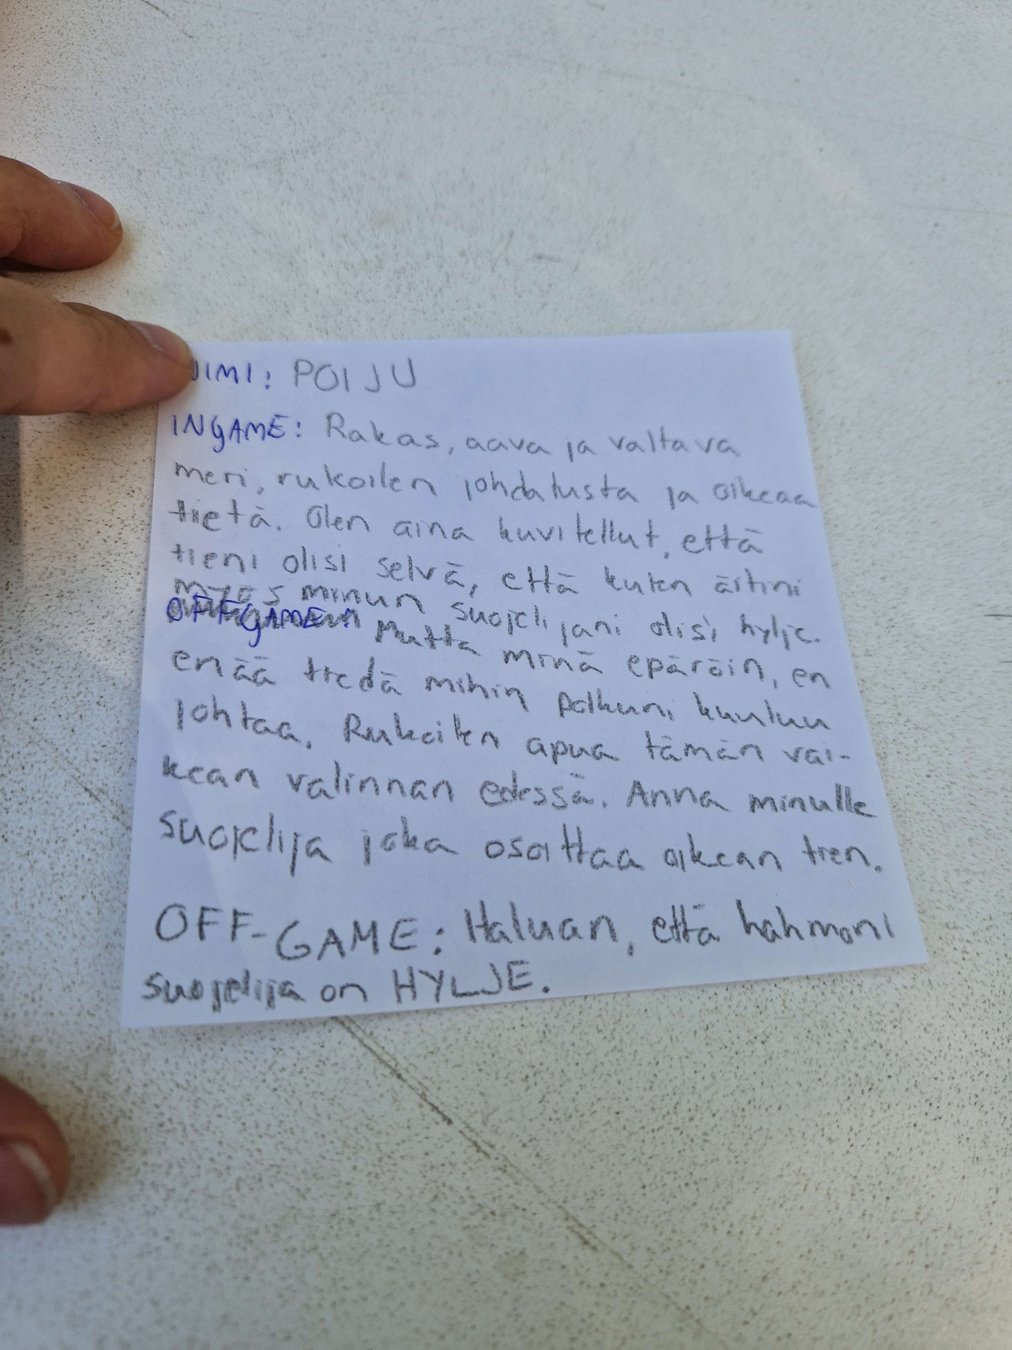 NIMI: POIJU
INGAME: Rakas, aava ja valtava
meri, rukoilen johdatusta ja oikeaa
tietä. Olen aina kuvitellut, että
tieni olisi selvä, että kuten äitini
myös minun suojelijani olisi hylje.
OFFGAME: Mutta minä epäröin, en
enää tiedä mihin polkuni kuuluu
johtaa. Rukoilen apua tämän vai-
kean valinnan edessä. Anna minulle
suojelija joka osoittaa oikean tien.
OFF-GAME: Haluan, että hahmoni
suojelija on HYLJE.